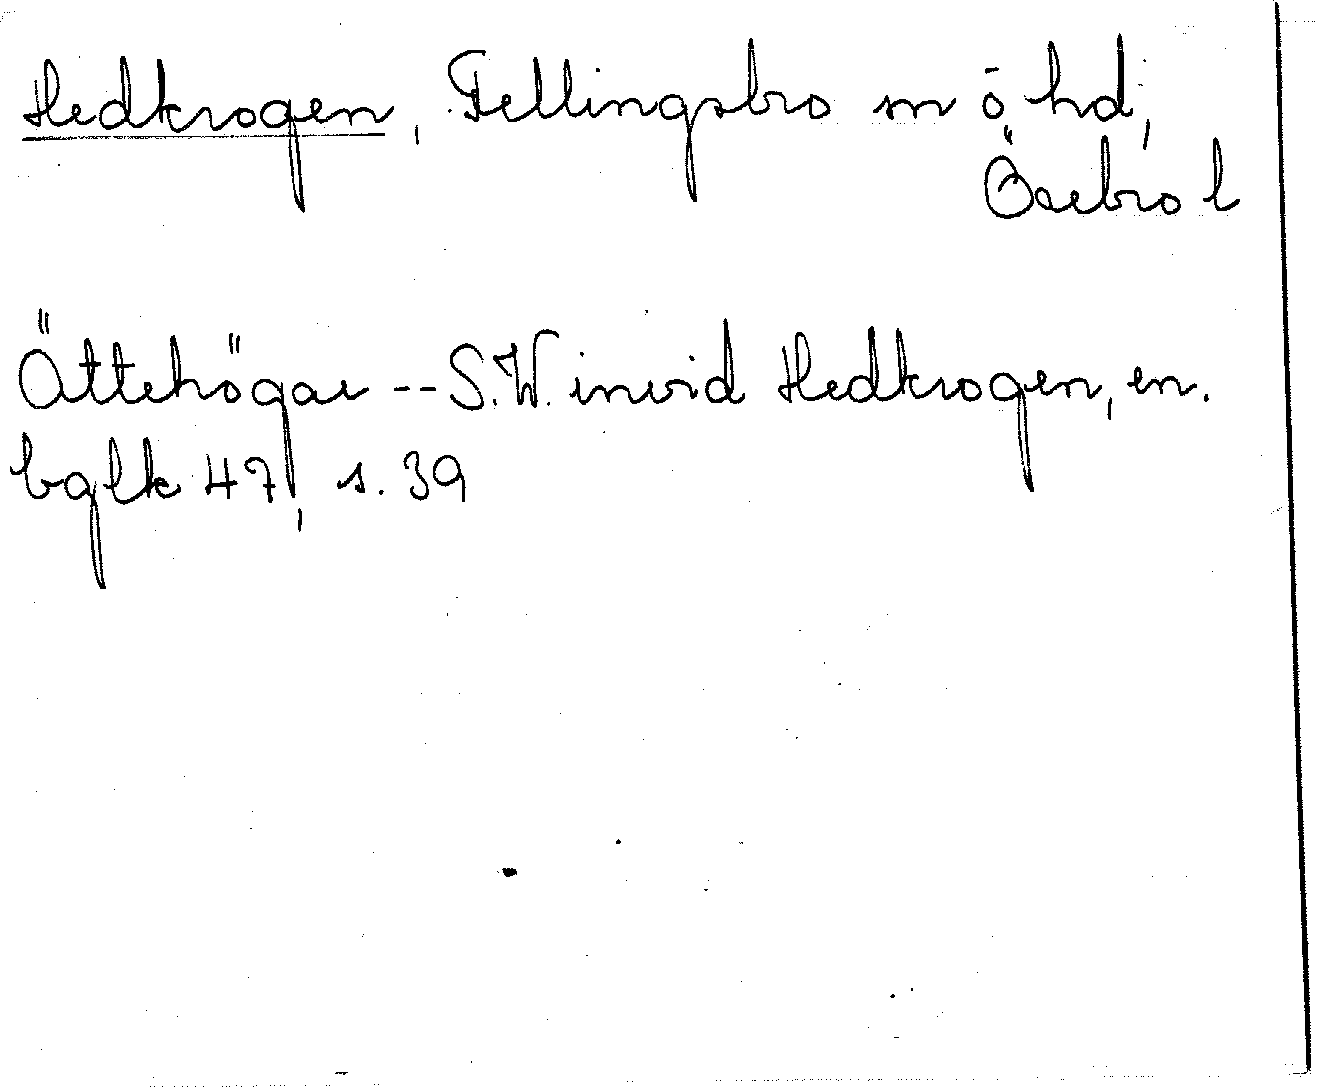 Hedkrogen, Fellingsbro sn o hd,
Örebro l
Ättehögar -- S.W. invid Hedkrogen, en.
bglk 47, s. 39